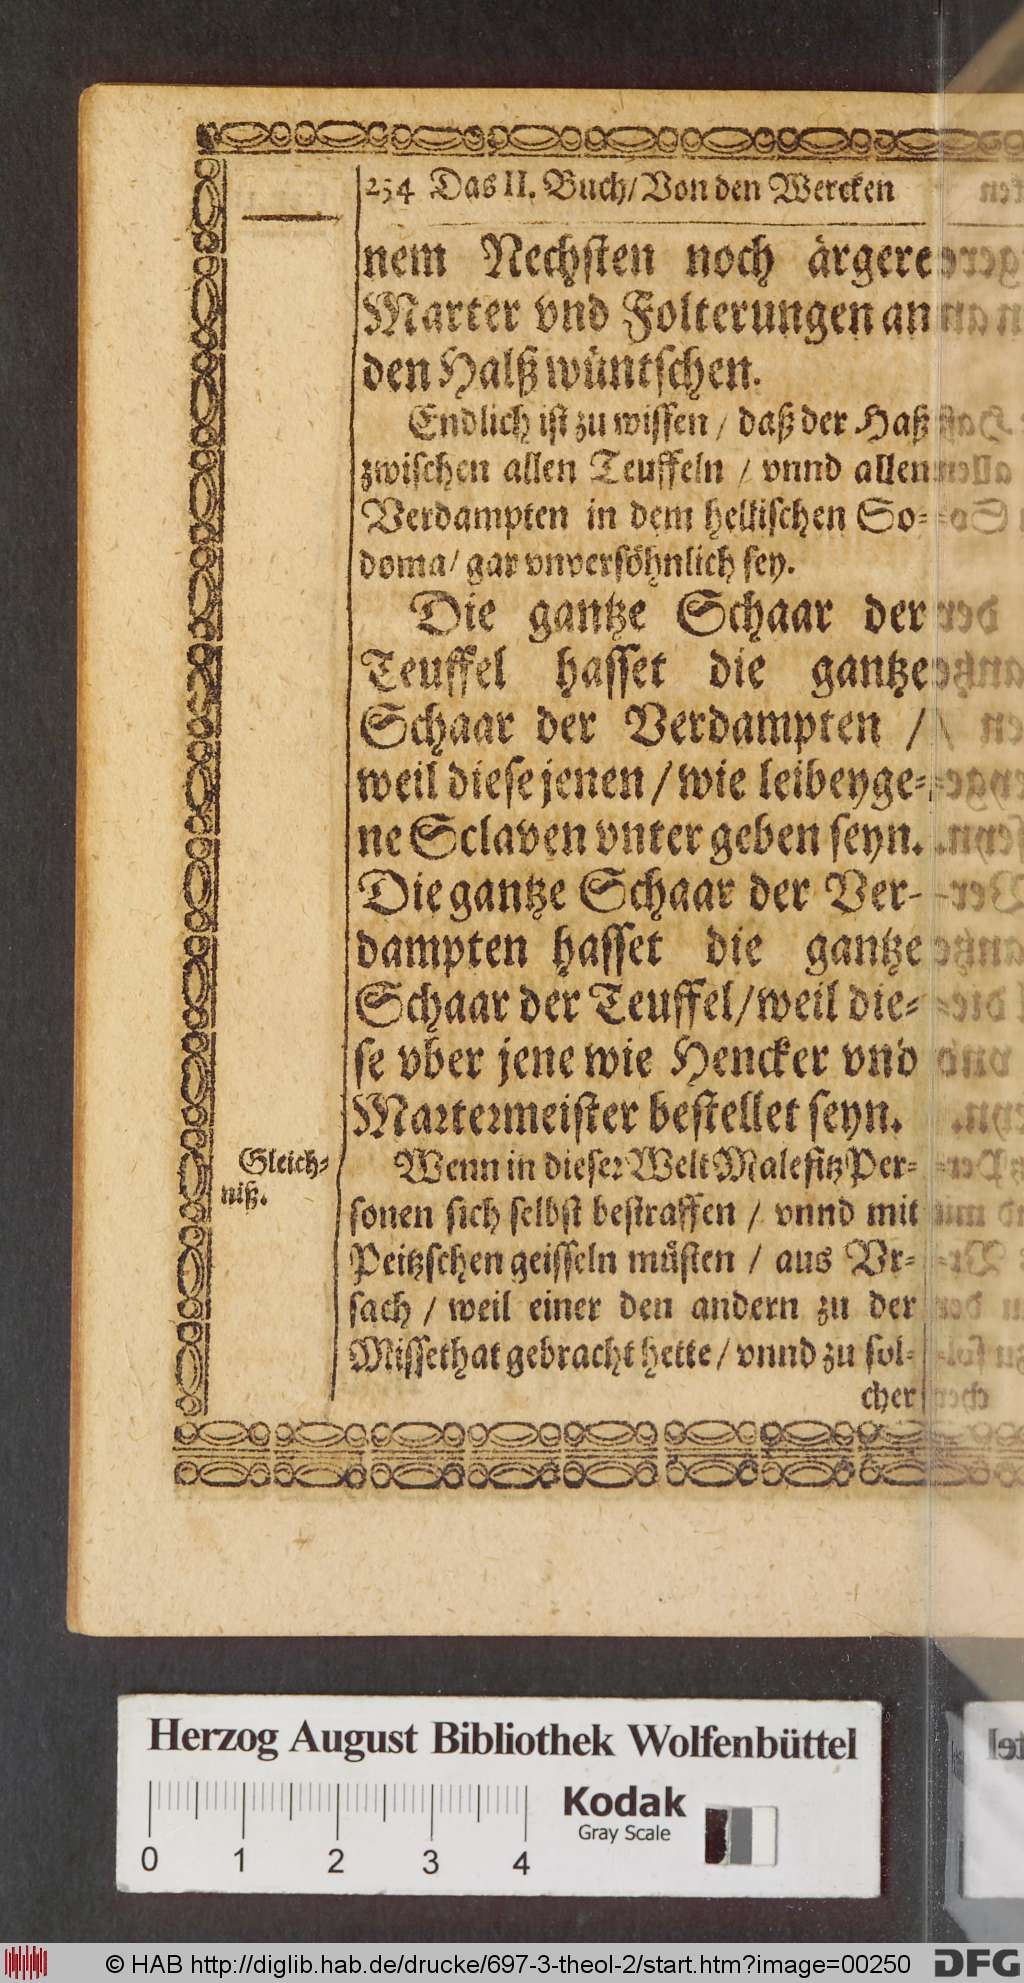 254 Das II. Buch/Von den Wercken
nem Nechsten noch ärgere
Marter vnd Folterungen an
den Halß wüntschen.
Endlich ist zu wissen / daß der Haß
zwischen allen Teuffeln / vnnd allen
Verdampten in dem hellischen So-
doma/ gar vnversöhnlich sey.
Die gantze Schaar der
Teuffel hasset die gantze
Schaar der Verdampten /
weil diese jenen / wie leibeyge-
ne Sclaven vnter geben seyn.
Die gantze Schaar der Ver-
dampten hasset die gantze
Schaar der Teuffel/weil die-
se vber jene wie Hencker vnd
Martermeister bestellet seyn.
Gleich-
niß.
Wenn in dieser Welt Malefitz Per-
sonen sich selbst bestraffen / vnnd mit
Peitzschen geisseln müsten / aus Vr-
sach / weil einer den andern zu der
Missethat gebracht hette / vnnd zu sol-
cher
Herzog August Bibliothek Wolfenbüttel
Kodak
Gray Scale
0 1 2 3 4
© HAB http://diglib.hab.de/drucke/697-3-theol-2/start.htm?image=00250
DFG